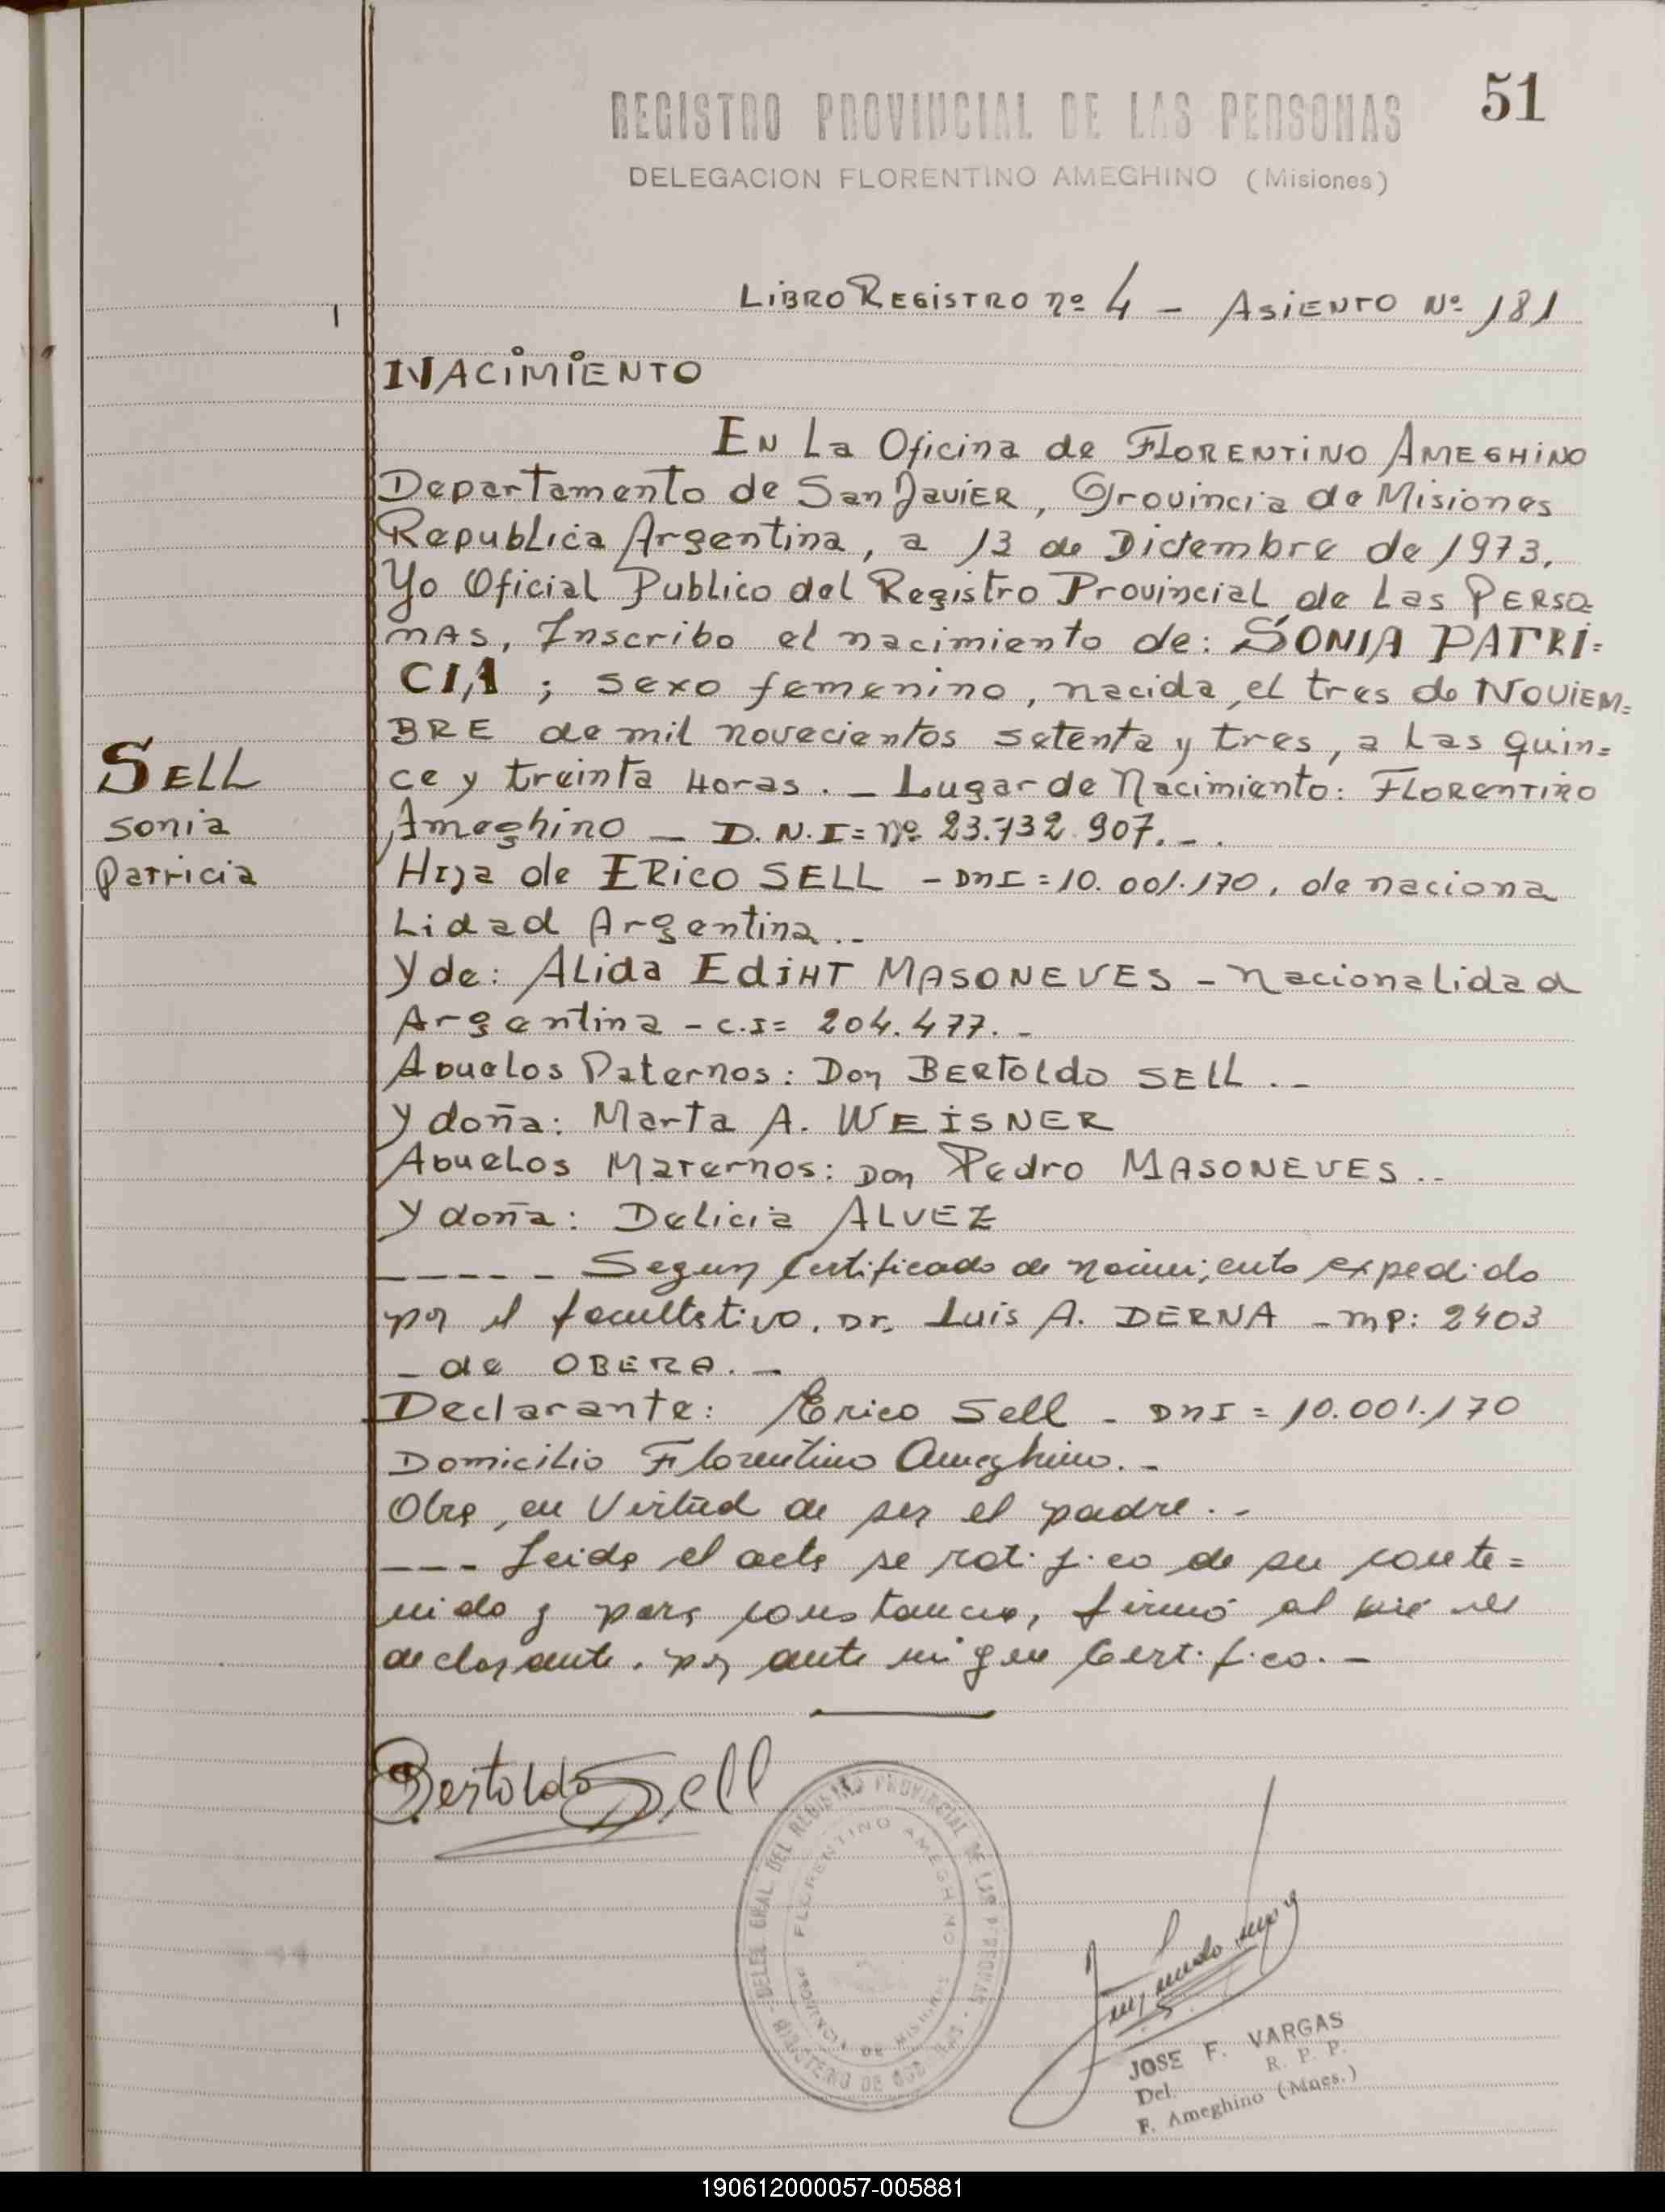 51
REGISTRO PROVINCIAL DE LAS PERSONAS
DELEGACION FLORENTINO AMEGHINO (Misiones)
LIBRO REGISTRO nº 4 - ASIENTO Nº 181
NACIMIENTO
EN La Oficina de FLORENTINO AMEGHINO
Departamento de San Javier, Provincia de Misiones
Republica Argentina, a 13 de Diciembre de 1973.
Yo Oficial Publico del Registro Provincial de Las PERSO=
NAS, Inscribo el nacimiento de: SONIA PATRI=
CIA ; sexo femenino, nacida, el tres de NOVIEM=
BRE de mil novecientos setenta y tres, a las quin=
ce y treinta Horas. - Lugar de Nacimiento: FLORENTINO
Ameghino - D.N.I= nº 23.732.907. - .
Hija de ERICO SELL - DNI = 10.001.170, de naciona
Lidad Argentina . -
Y de: ALida EDIHT MASONEVES - nacionalidad
Argentina - C.I= 204.477. -
Abuelos Paternos: Don BERTOLDO SELL . -
Y doña: Marta A. WEISNER
Abuelos Maternos: Don Pedro MASONEVES . .
Y doña: Delicia ALVEZ
- - - - - Segun Certificado de nacimiento expedido
por el facultativo. Dr. Luis A. DERNA - MP: 2403
- de OBERA. -
Declarante: Erico Sell - DNI = 10.001.170
Domicilio Florentino Ameghino. -
Obra, en Virtud de ser el padre. -
- - - Leida el acta se ratifico de su conte=
nido y para constancia, firmó al pié el
declarante. por ante mi que Certifico. -
SELL
Sonia
Patricia
Bertoldo Sell
DELEG. GRAL. DEL REGISTRO PROVINCIAL DE LAS PERSONAS
FLORENTINO AMEGHINO
PROVINCIA DE MISIONES
JOSE F. VARGAS
Del. R. P. P.
F. Ameghino (Mnes.)
190612000057-005881